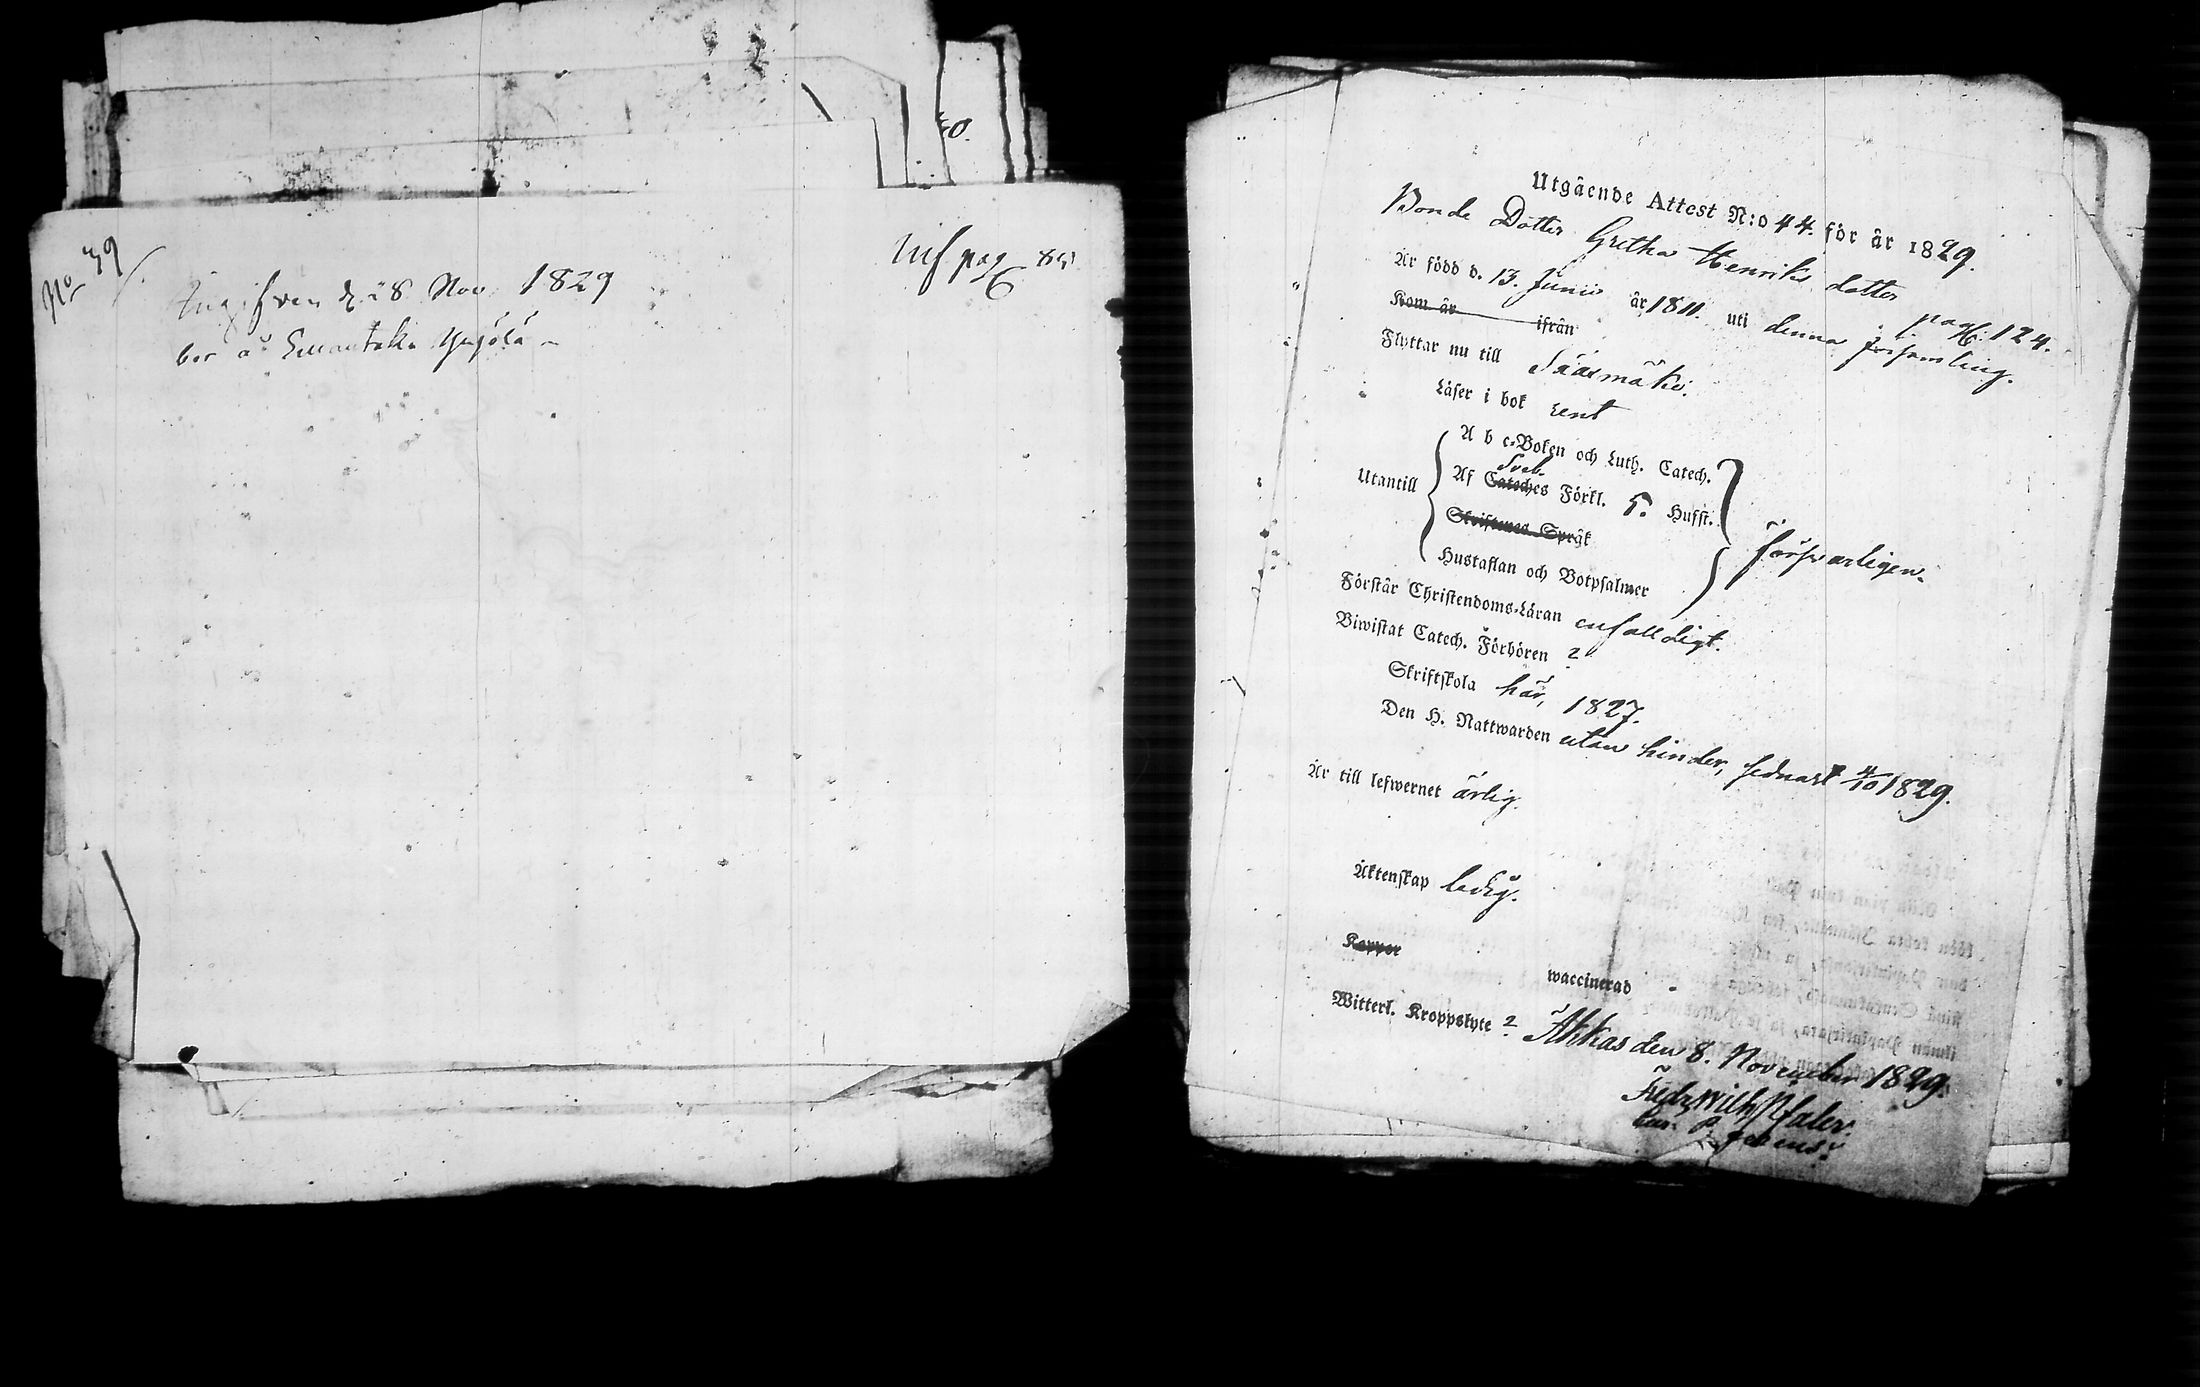 No 39
Inf pag 85
Ingifven d. 28 Nov 1829
bor å
Utgående Attest N:o 44. för år 1829.
Bonde Dotter Gretha Henriks dotter pag. 124.
Är född d. 13. Junii år 1811. uti denna församling.
Kom år ifrån
Flyttar nu till Sääsmäki.
Läser i bok rent
A b c-Boken och Luth. Catech.
Sveb.
Utantill Af Cateches Förkl. 5. Hufst. försvarligen.
Skriftenes Språk
Hustaflan och Botpsalmer
Förstår Christendoms-Läran enfaldigt.
Biwistat Catech. Förhören 2
Skriftskola här, 1827.
Den H. Nattwarden utan hinder, sednast 4/10 1829.
Är till lefwernet ärlig.
Äktenskap ledig.
Koppor waccinerad
Witterl. Kroppslyte 2 Akkas den 8. November 1829.
Fredr Wilh Pfaler